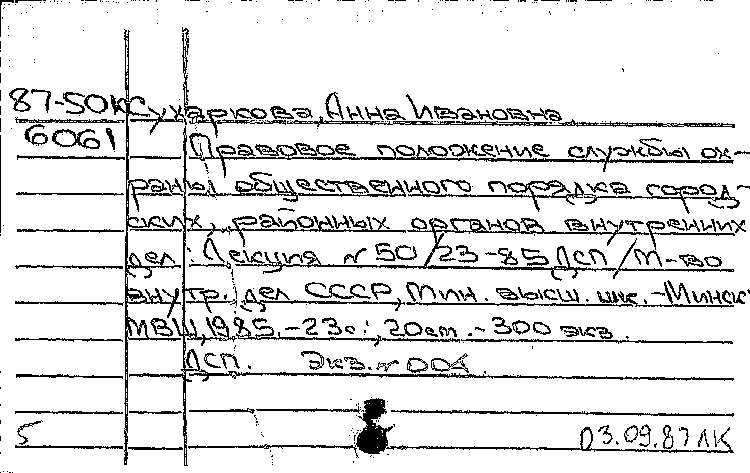 87-50К Сухаркова, Анна Ивановна
6061 Правовое положение службы ох-
раны общественного порядка город-
ских, районных органов внутренних
дел: Лекция № 50/23-85 ДСП/М-во
внутр. дел СССР, Мин. высш. шк. -Минск:
МВШ, 1985. -23с.; 20см. -300 экз.
ДСП. Экз. № 004
5 03.09.87 ЛК